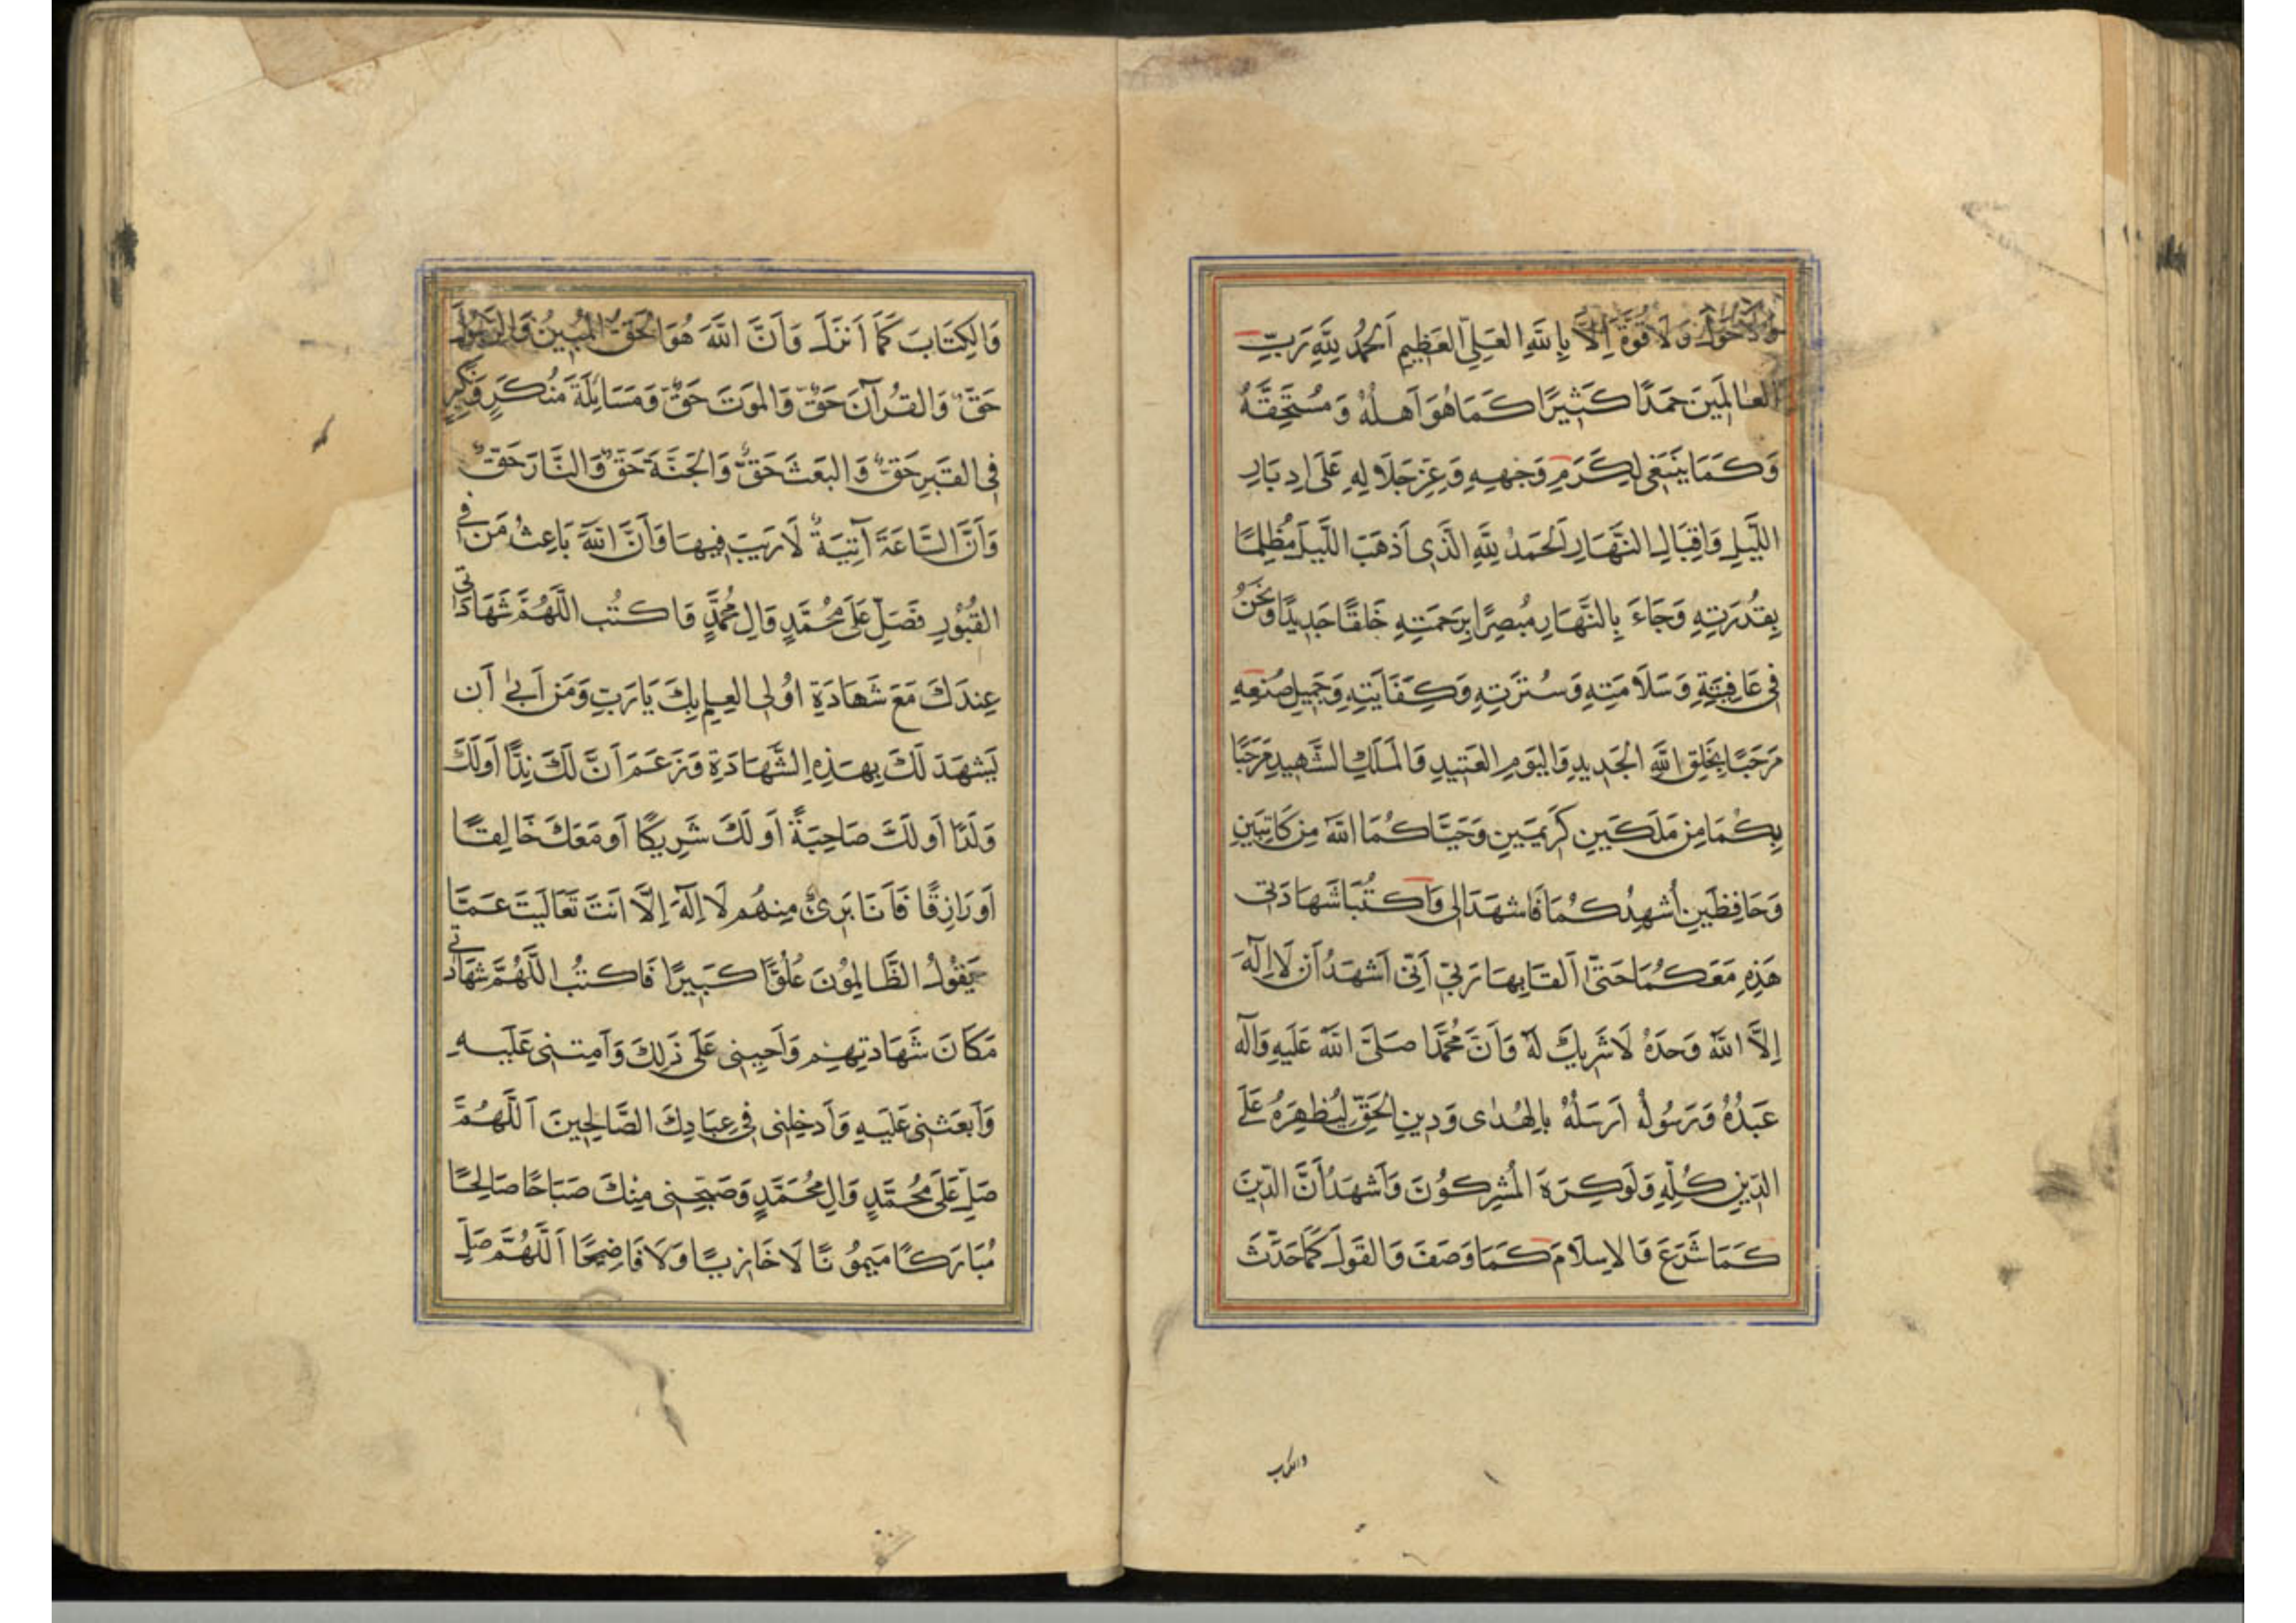 وَلَاحَوْلَ وَلَا قُوَّةَ اِلَّا بِاللهِ العَلِيِّ العَظِيمِ اَلْحَمْدُ لِلَّهِ رَبِّ
العَالَمِينَ حَمْدًا كَثِيرًا كَمَا هُوَ اَهْلُهُ وَ مُسْتَحِقُّهُ
وَكَمَا يَنْبَغِى لِكَرَمِ وَجْهِهِ وَعِزِّ جَلَالِهِ عَلَى اِدبَارِ
اللَّيلِ وَاِقبَالِ النَّهَارِ اَلحَمدُ لِلَّهِ الَّذِى اَذهَبَ اللَّيلَ مُظلِمًا
بِقُدرَتِهِ وَجَاءَ بِالنَّهَارِ مُبصِرًا بِرَحمَتِهِ خَلقًا جَدِيدًا وَنَحنُ
فِى عَافِيَتِهِ وَسَلَامَتِهِ وَسُترَتِهِ وَكِفَايَتِهِ وَجَمِيلِ صُنعِهِ
مَرحَبًا بِخَلقِ اللهِ الجَدِيدِ وَاليَومِ العَتِيدِ وَالمَلَكِ الشَّهِيدِ مَرحَبًا
بِكُمَا مِن مَلَكَينِ كَرِيمَينِ وَحَيَّاكُمَا اللهُ مِن كَاتِبَينِ
وَحَافِظَينِ اُشهِدُكُمَا فَاشهَدَا لِى وَاكتُبَا شَهَادَتِى
هَذِهِ مَعَكُمَا حَتَّى اَلقَا بِهَا رَبِّى اَنِّى اَشهَدُ اَن لَا اِلَهَ
اِلَّا اللهُ وَحدَهُ لَا شَرِيكَ لَهُ وَاَنَّ مُحَمَّدًا صَلَّى اللهُ عَلَيهِ وَآلِهِ
عَبدُهُ وَرَسُولُهُ اَرسَلَهُ بِالهُدٰى وَدِينِ الحَقِّ لِيُظهِرَهُ عَلَى
الدِّينِ كُلِّهِ وَلَو كَرِهَ المُشرِكُونَ وَاَشهَدُ اَنَّ الدِّينَ
كَمَا شَرَعَ وَالاِسلَامَ كَمَا وَصَفَ وَالقَولَ كَمَا حَدَّثَ
والكتاب
وَالكِتَابَ كَمَا اَنزَلَ وَاَنَّ اللهَ هُوَ الحَقُّ المُبِينُ وَالرَّسُولَ
حَقٌّ وَالقُرآنَ حَقٌّ وَالمَوتَ حَقٌّ وَمَسَائِلَةَ مُنكَرٍ وَنَكِيرٍ
فِى القَبرِ حَقٌّ وَالبَعثَ حَقٌّ وَالجَنَّةَ حَقٌّ وَالنَّارَ حَقٌّ
وَاَنَّ السَّاعَةَ آتِيَةٌ لَا رَيبَ فِيهَا وَاَنَّ اللهَ بَاعِثُ مَن فِى
القُبُورِ فَصَلِّ عَلَى مُحَمَّدٍ وَآلِ مُحَمَّدٍ وَاكتُب اللَّهُمَّ شَهَادَتِى
عِندَكَ مَعَ شَهَادَةِ اُولِى العِلمِ بِكَ يَارَبِّ وَمَن اَبٰى اَن
يَشهَدَ لَكَ بِهَذِهِ الشَّهَادَةِ وَزَعَمَ اَنَّ لَكَ نِدًّا اَو لَكَ
وَلَدًا اَو لَكَ صَاحِبَةً اَو لَكَ شَرِيكًا اَو مَعَكَ خَالِقًا
اَو رَازِقًا فَاَنَا بَرِىٌ مِنهُم لَا اِلَهَ اِلَّا اَنتَ تَعَالَيتَ عَمَّا
يَقُولُ الظَّالِمُونَ عُلُوًّا كَبِيرًا فَاكتُب اللَّهُمَّ شَهَادَتِى
مَكَانَ شَهَادَتِهِم وَاَحيِنِى عَلَى ذَلِكَ وَاَمِتنِى عَلَيهِ
وَابعَثنِى عَلَيهِ وَاَدخِلنِى فِى عِبَادِكَ الصَّالِحِينَ اَللَّهُمَّ
صَلِّ عَلَى مُحَمَّدٍ وَآلِ مُحَمَّدٍ وَصَبِّحنِى مِنكَ صَبَاحًا صَالِحًا
مُبَارَكًا مَيمُونًا لَا خَازِيًا وَلَا فَاضِحًا اَللَّهُمَّ صَلِّ